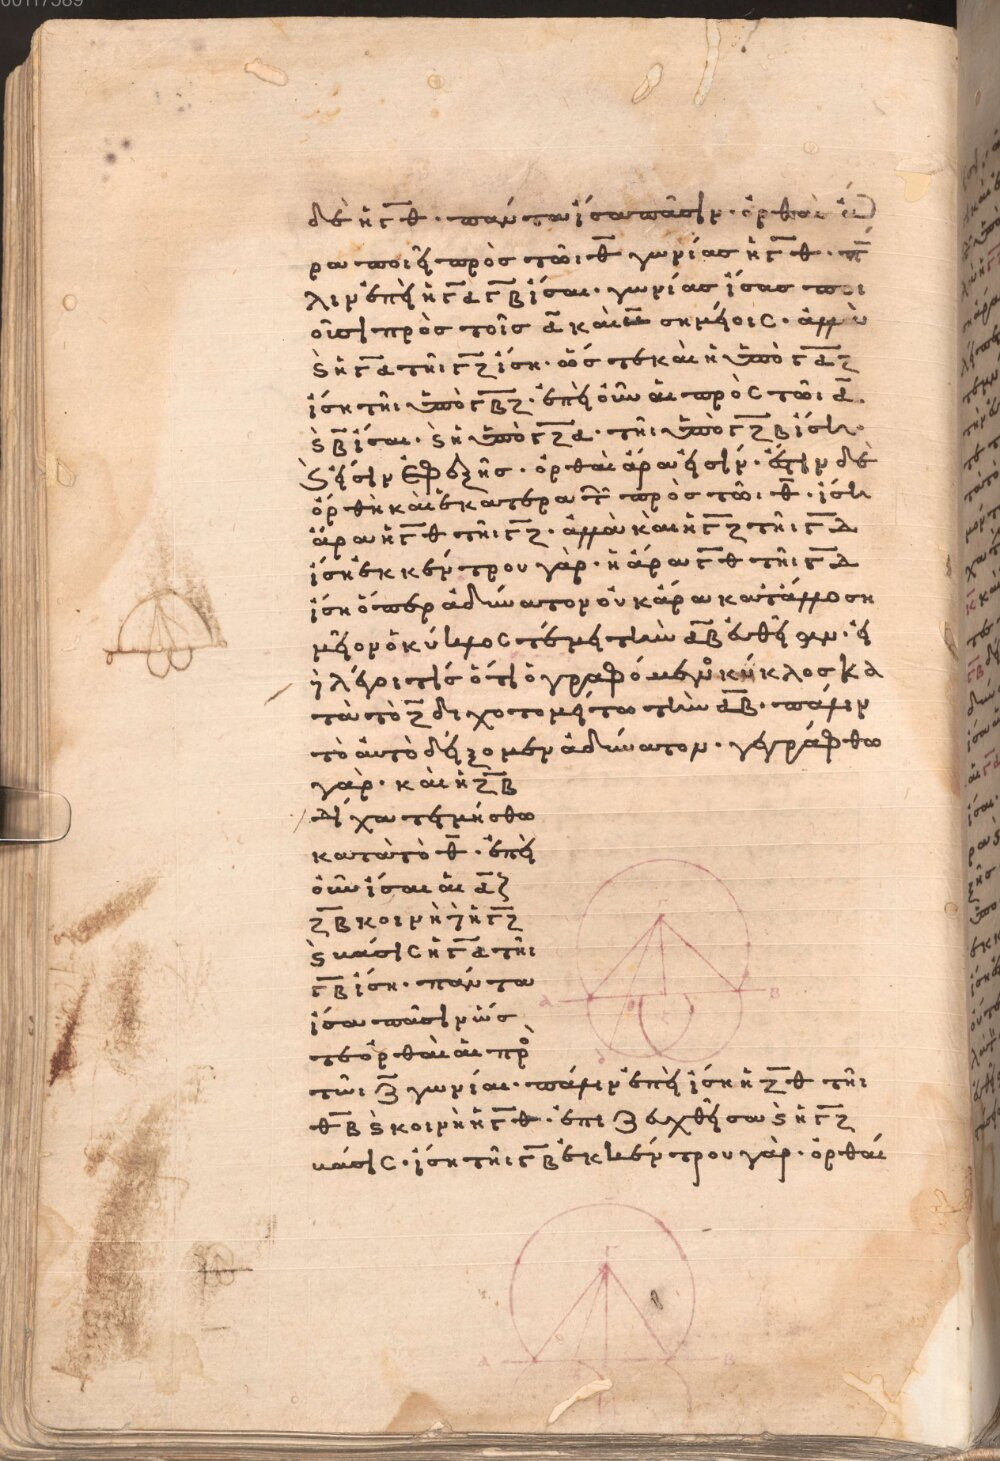 δὲ ἡ ΓΘ. πάντα ἴσα πᾶσιν. ὀρθὰς ἄ
ρα ποιεῖ πρὸς τῶι Θ γωνίας ἡ ΓΘ. π
λιν ἐπεὶ ἡ ΓΔ ΓΒ ἴσαι. γωνίας ἴσας ποι
οῦσι πρὸς τοῖς Δ καὶ σημείοις. ἀλλὰ
ϛ ἡ ΓΔ τῆι ΓΖ ἴση. ὥστε καὶ ἡ ὑπὸ ΓΔΖ
ἴση τῆι ὑπὸ ΓΒΖ. ἐπεὶ οὖν αἱ πρὸς τῶι Δ.
ϛ Β ἴσαι. ϛ ἡ ὑπὸ ΓΖΔ. τῆι ὑπὸ ΓΖΒ ἴση.
ϛ εἰσὶν ἐφεξῆς. ὀρθαὶ ἄρα εἰσίν. ἔστιν δὲ
ὀρθὴ καὶ ἑκατέρα τῶν πρὸς τῶι Θ. ἴση
ἄρα ἡ ΓΘ τῆι ΓΖ. ἀλλὰ καὶ ἡ ΓΖ τῆι ΓΔ
ἴση ἐκ κέντρου γάρ. ἡ ἄρα ΓΘ τῆι ΓΔ
ἴση ὅπερ ἀδύνατον οὐκ ἄρα κατ' ἄλλο ση
μεῖον ὁ κύκλος τέμει τὴν ΔΒ εὐθεῖαν. εἰ
λέγοι τίς ὅτι ὁ γραφόμενος κύκλος κα
τὰ τὸ Ζ διχοτομείτω τὴν ΔΒ. πάλιν
τὸ αὐτὸ δείξομεν ἀδύνατον. γεγράφθω
γάρ. καὶ ἡ ΖΒ
δίχα τεμήσθω
κατὰ τὸ Θ. ἐπεὶ
οὖν ἴσαι αἱ ΔΖ
ΖΒ κοινὴ ἡ ΓΖ
ϛ βάσις ἡ ΓΔ τῆι
ΓΒ ἴση. πάντα
ἴσα πᾶσιν ὥς
τε ὀρθαὶ αἱ πρὸ
τῶι Ζ γωνίαι. πάλιν ἐπεὶ ἴση ἡ ΖΘ τῆι
ΘΒ ϛ κοινὴ ἡ ΓΘ. ἐπιζευχθεῖσα ϛ ἡ ΓΖ
βάσις. ἴση τῆι ΓΒ ἐκ κέντρου γάρ. ὀρθαί
Γ
Α
Β
Γ
Α
Β